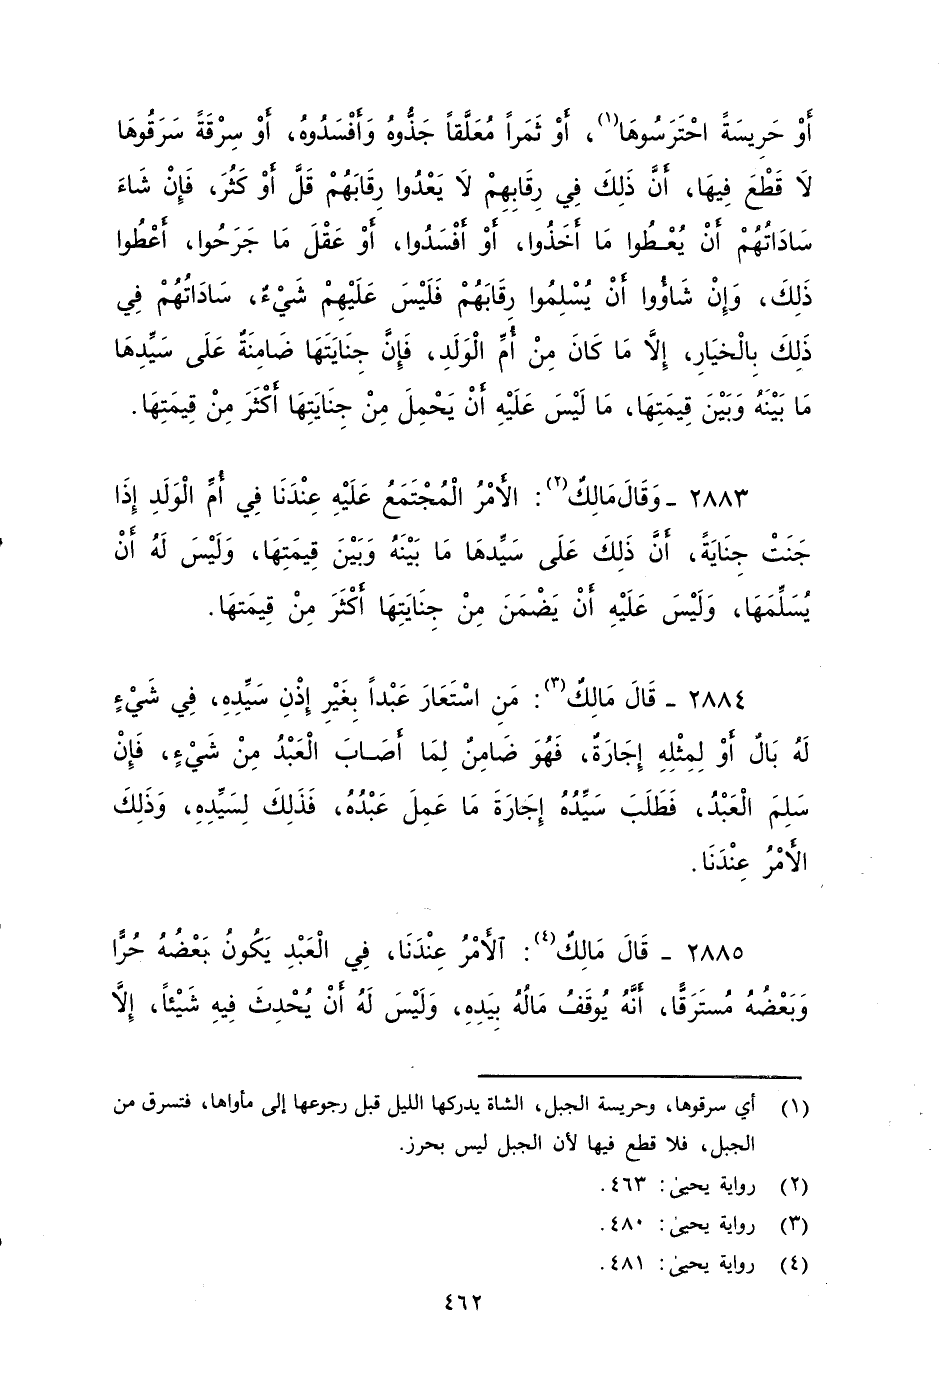 أَوْ حَرِيسَةً احْتَرَسُوهَا(١)، أَوْ ثَمَراً مُعَلَّقاً جَذُّوهُ وَأَفْسَدُوهُ، أَوْ سِرْقَةً سَرَقُوهَا
لَا قَطْعَ فِيهَا، أَنَّ ذَلِكَ فِي رِقَابِهِمْ لَا يَعْدُوا رِقَابَهُمْ قَلَّ أَوْ كَثُرَ، فَإِنْ شَاءَ
سَادَاتُهُمْ أَنْ يُعْطُوا مَا أَخَذُوا، أَوْ أَفْسَدُوا، أَوْ عَقْلَ مَا جَرَحُوا، أَعْطُوا
ذَلِكَ، وَإِنْ شَاؤُوا أَنْ يُسْلِمُوا رِقَابَهُمْ فَلَيْسَ عَلَيْهِمْ شَيْءٌ، سَادَاتُهُمْ فِي
ذَلِكَ بِالْخيَارِ، إِلَّا مَا كَانَ مِنْ أُمِّ الْوَلَدِ، فَإِنَّ جِنَايَتَهَا ضَامِنَةٌ عَلَى سَيِّدِهَا
مَا بَيْنَهُ وَبَيْنَ قِيمَتِهَا، مَا لَيْسَ عَلَيْهِ أَنْ يَحْمِلَ مِنْ جِنَايَتِهَا أَكْثَرَ مِنْ قِيمَتِهَا.
٢٨٨٣ ـ وَقَالَ مَالِكٌ(٢): الأَمْرُ الْمُجْتَمَعُ عَلَيْهِ عِنْدَنَا فِي أُمِّ الْوَلَدِ إِذَا
جَنَتْ جِنَايَةً، أَنَّ ذَلِكَ عَلَى سَيِّدِهَا مَا بَيْنَهُ وَبَيْنَ قِيمَتِهَا، وَلَيْسَ لَهُ أَنْ
يُسَلِّمَهَا، وَلَيْسَ عَلَيْهِ أَنْ يَضْمَنَ مِنْ جِنَايَتِهَا أَكْثَرَ مِنْ قِيمَتهَا.
٢٨٨٤ ـ قَالَ مَالِكٌ(٣): مَنِ اسْتَعَارَ عَبْداً بِغَيْرِ إِذْنِ سَيِّدِهِ، فِي شَيْءٍ
لَهُ بَالٌ أَوْ لِمِثْلِهِ إِجَارَةٌ، فَهُوَ ضَامِنٌ لِمَا أَصَابَ الْعَبْدُ مِنْ شَيْءٍ، فَإِنْ
سَلِمَ الْعَبْدُ، فَطَلَبَ سَيِّدُهُ إِجَارَةَ مَا عَمِلَ عَبْدُهُ، فَذَلِكَ لِسَيِّدِهِ، وَذَلِكَ
الأَمْرُ عِنْدَنَا.
٢٨٨٥ ـ قَالَ مَالِكٌ(٤): ٱلأَمْرُ عِنْدَنَا، فِي الْعَبْدِ يَكُونُ بَعْضُهُ حُرًّا
وَبَعْضُهُ مُستَرَقًّا، أَنَّهُ يُوقَفُ مَالُهُ بِيَدِهِ، وَلَيْسَ لَهُ أَنْ يُحْدِثَ فِيهِ شَيْئاً، إِلَّا
(١) أي سرقوها، وحريسة الجبل، الشاة يدركها الليل قبل رجوعها إلى مأواها، فتسرق من
الجبل، فلا قطع فيها لأن الجبل ليس بحرز.
(٢) رواية يحيىٰ: ٤٦٣.
(٣) رواية يحيىٰ: ٤٨٠.
(٤) رواية يحيىٰ: ٤٨١.
٤٦٢